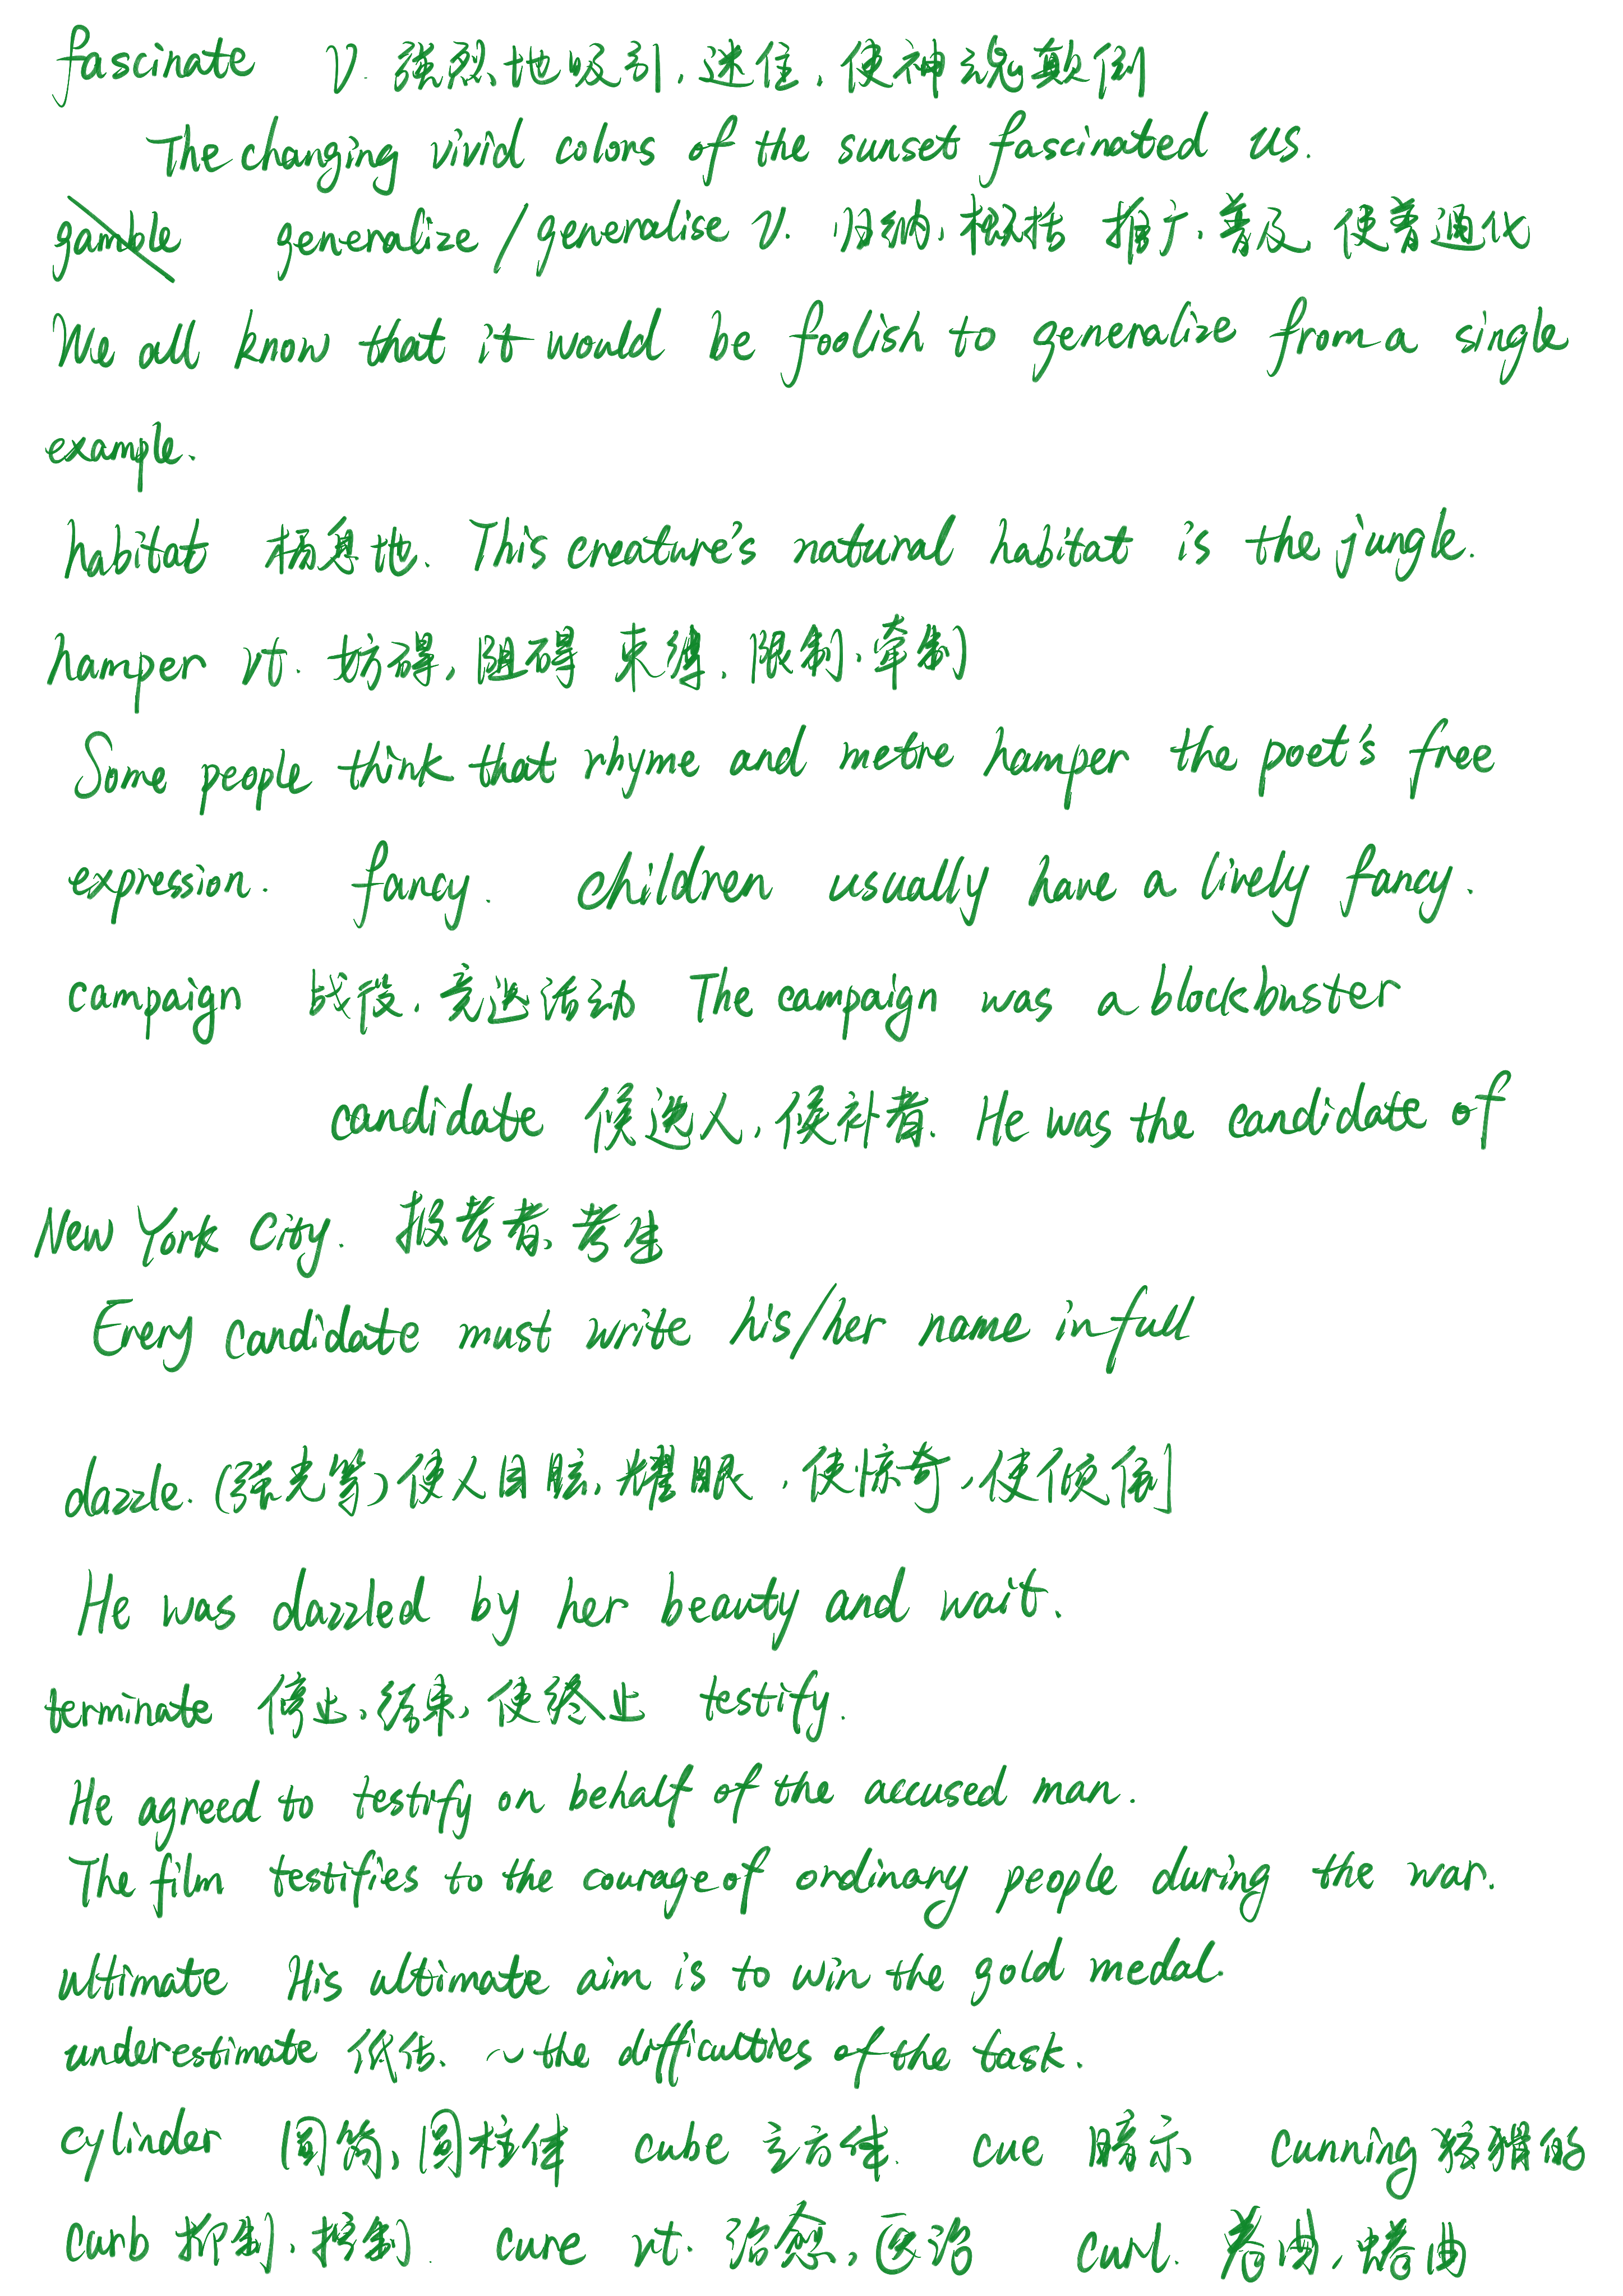 fascinate V. 强烈地吸引,迷住,使神魂颠倒
The changing vivid colors of the sunset fascinated us.
gamble generalize/generalise v. 归纳,概括 推广,普及 使普通化
We all know that it would be foolish to generalize from a single
example.
habitat 栖息地. This creature's natural habitat is the jungle.
hamper vt. 妨碍,阻碍 束缚,限制,牵制
Some people think that rhyme and metre hamper the poet's free
expression. fancy. children usually have a lively fancy.
campaign 战役,竞选活动 The campaign was a blockbuster
candidate 候选人,候补者. He was the candidate of
New York City. 报考者,考生
Every candidate must write his/her name in full
dazzle. (强光等)使人目眩,耀眼,使惊奇,使倾倒
He was dazzled by her beauty and wait.
terminate 停止,结束,使终止 testify.
He agreed to testify on behalf of the accused man.
The film testifies to the courage of ordinary people during the war.
ultimate His ultimate aim is to win the gold medal.
underestimate 低估. ~the difficulties of the task.
cylinder 圆筒,圆柱体 cube 立方体. cue 暗示 cunning 狡猾的
curb 抑制,控制. cure vt. 治愈,医治 curl. 卷曲,蜷曲